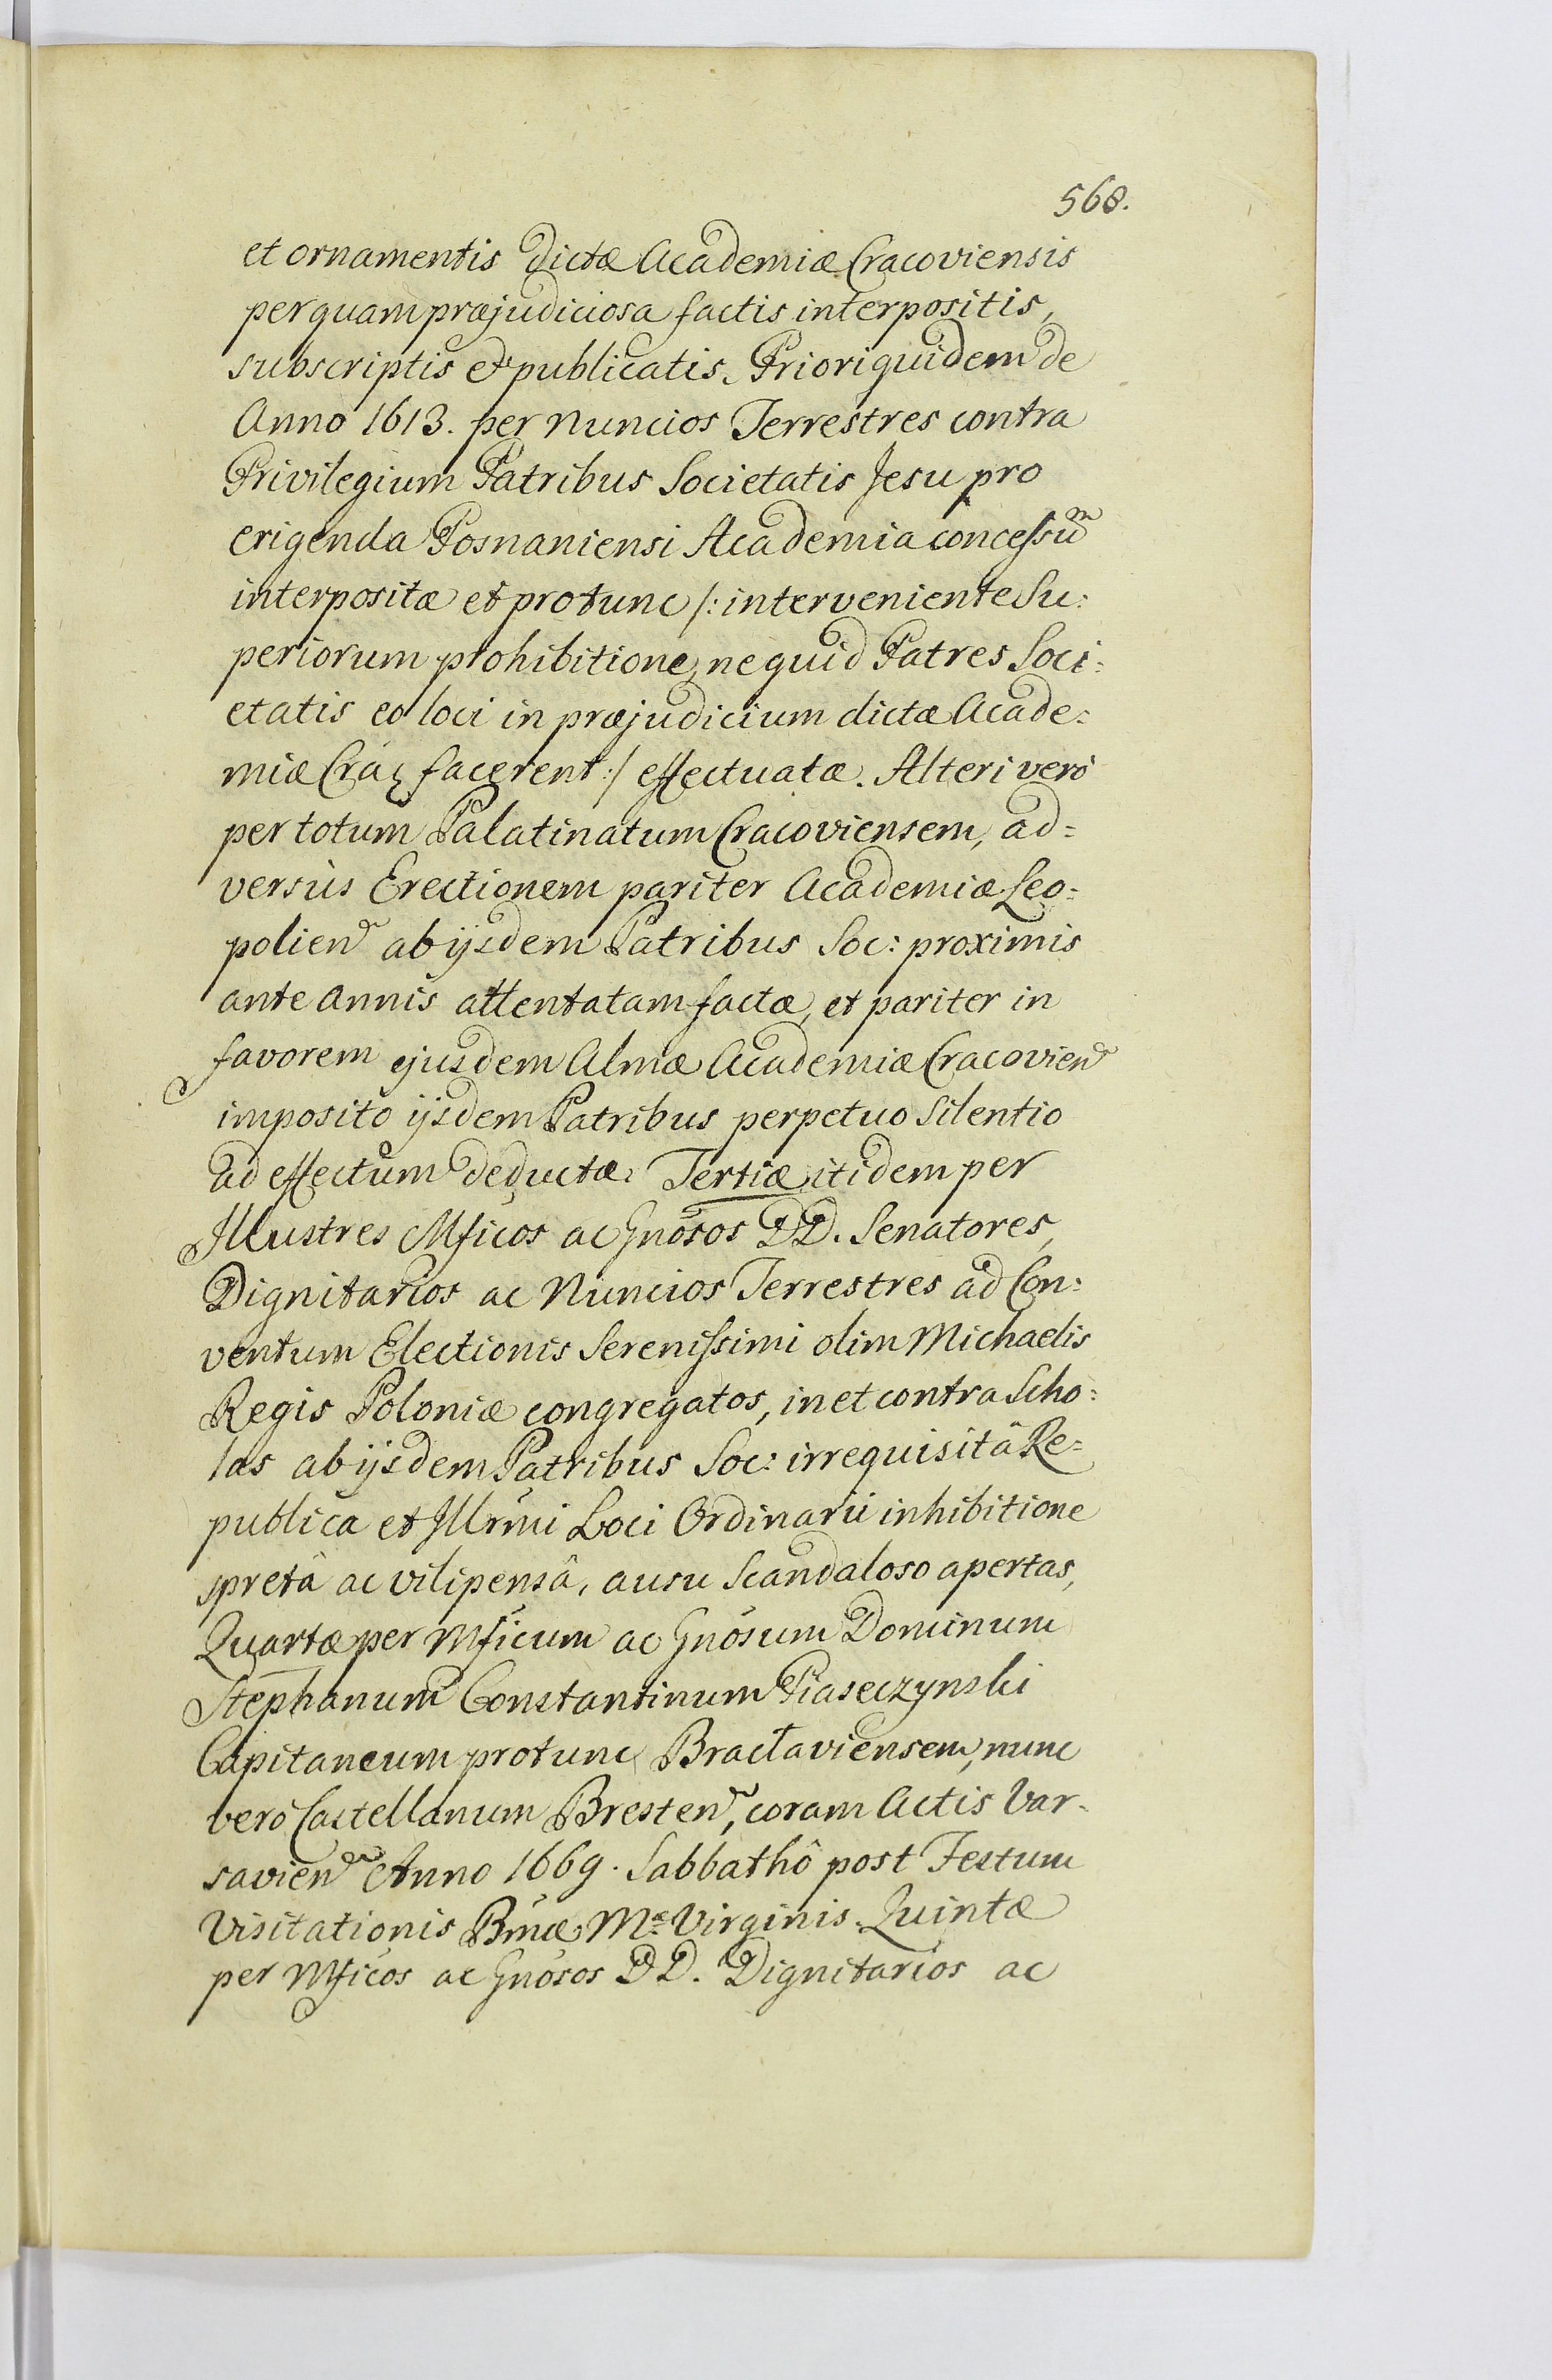 568.
et ornamentis dictæ Academiæ Cracoviensis
perquam præjudiciosa factis interpositis,
subscriptis et publicatis. Priori quidem de
Anno 1613. per Nuncios Terrestres contra
Privilegium Patribus Societatis Jesu pro
erigenda Posnaniensi Academia concessũm
interpositæ et protunc /: interveniente Su:
periorum prohibitione, ne quid Patres Soci:
etatis eo loci in præjudicium dictæ Acade:
miæ Crac facerent :/ effectuatæ. Alteri verò
per totum Palatinatum Cracoviensem, ad=
versùs Erectionem pariter Academiæ Leo=
polien ab ijsdem Patribus Soc: proximis
ante annis attentatam factæ, et pariter in
favorem ejusdem Almæ Academiæ Cracovien
imposito ijsdem Patribus perpetuo Silentio
ad effectum deductæ. Tertiæ itidem per
Illustres Mficos ac Gnosos DD. Senatores,
Dignitarios ac Nuncios Terrestres ad Con:
ventum Electionis Serenissimi olim Michaelis
Regis Poloniæ congregatos, in et contra Scho:
las ab ijsdem Patribus Soc: irrequisitâ Re=
publica et Illrmi Loci Ordinarii inhibitione
spretâ ac vilipensâ, ausu Scandaloso apertas,
Quartæ per Mficum ac Gnosum Dominum
Stephanum Constantinum Piaseczynski
Capitaneum protunc Bractaviensem, nunc
verò Castellanum Bresten, coram Actis Var=
savien Anno 1669. Sabbathô post Festum
Visitationis Bmæ Mæ Virginis. Quintæ
per Mficos ac Gnosos DD. Dignitarios ac